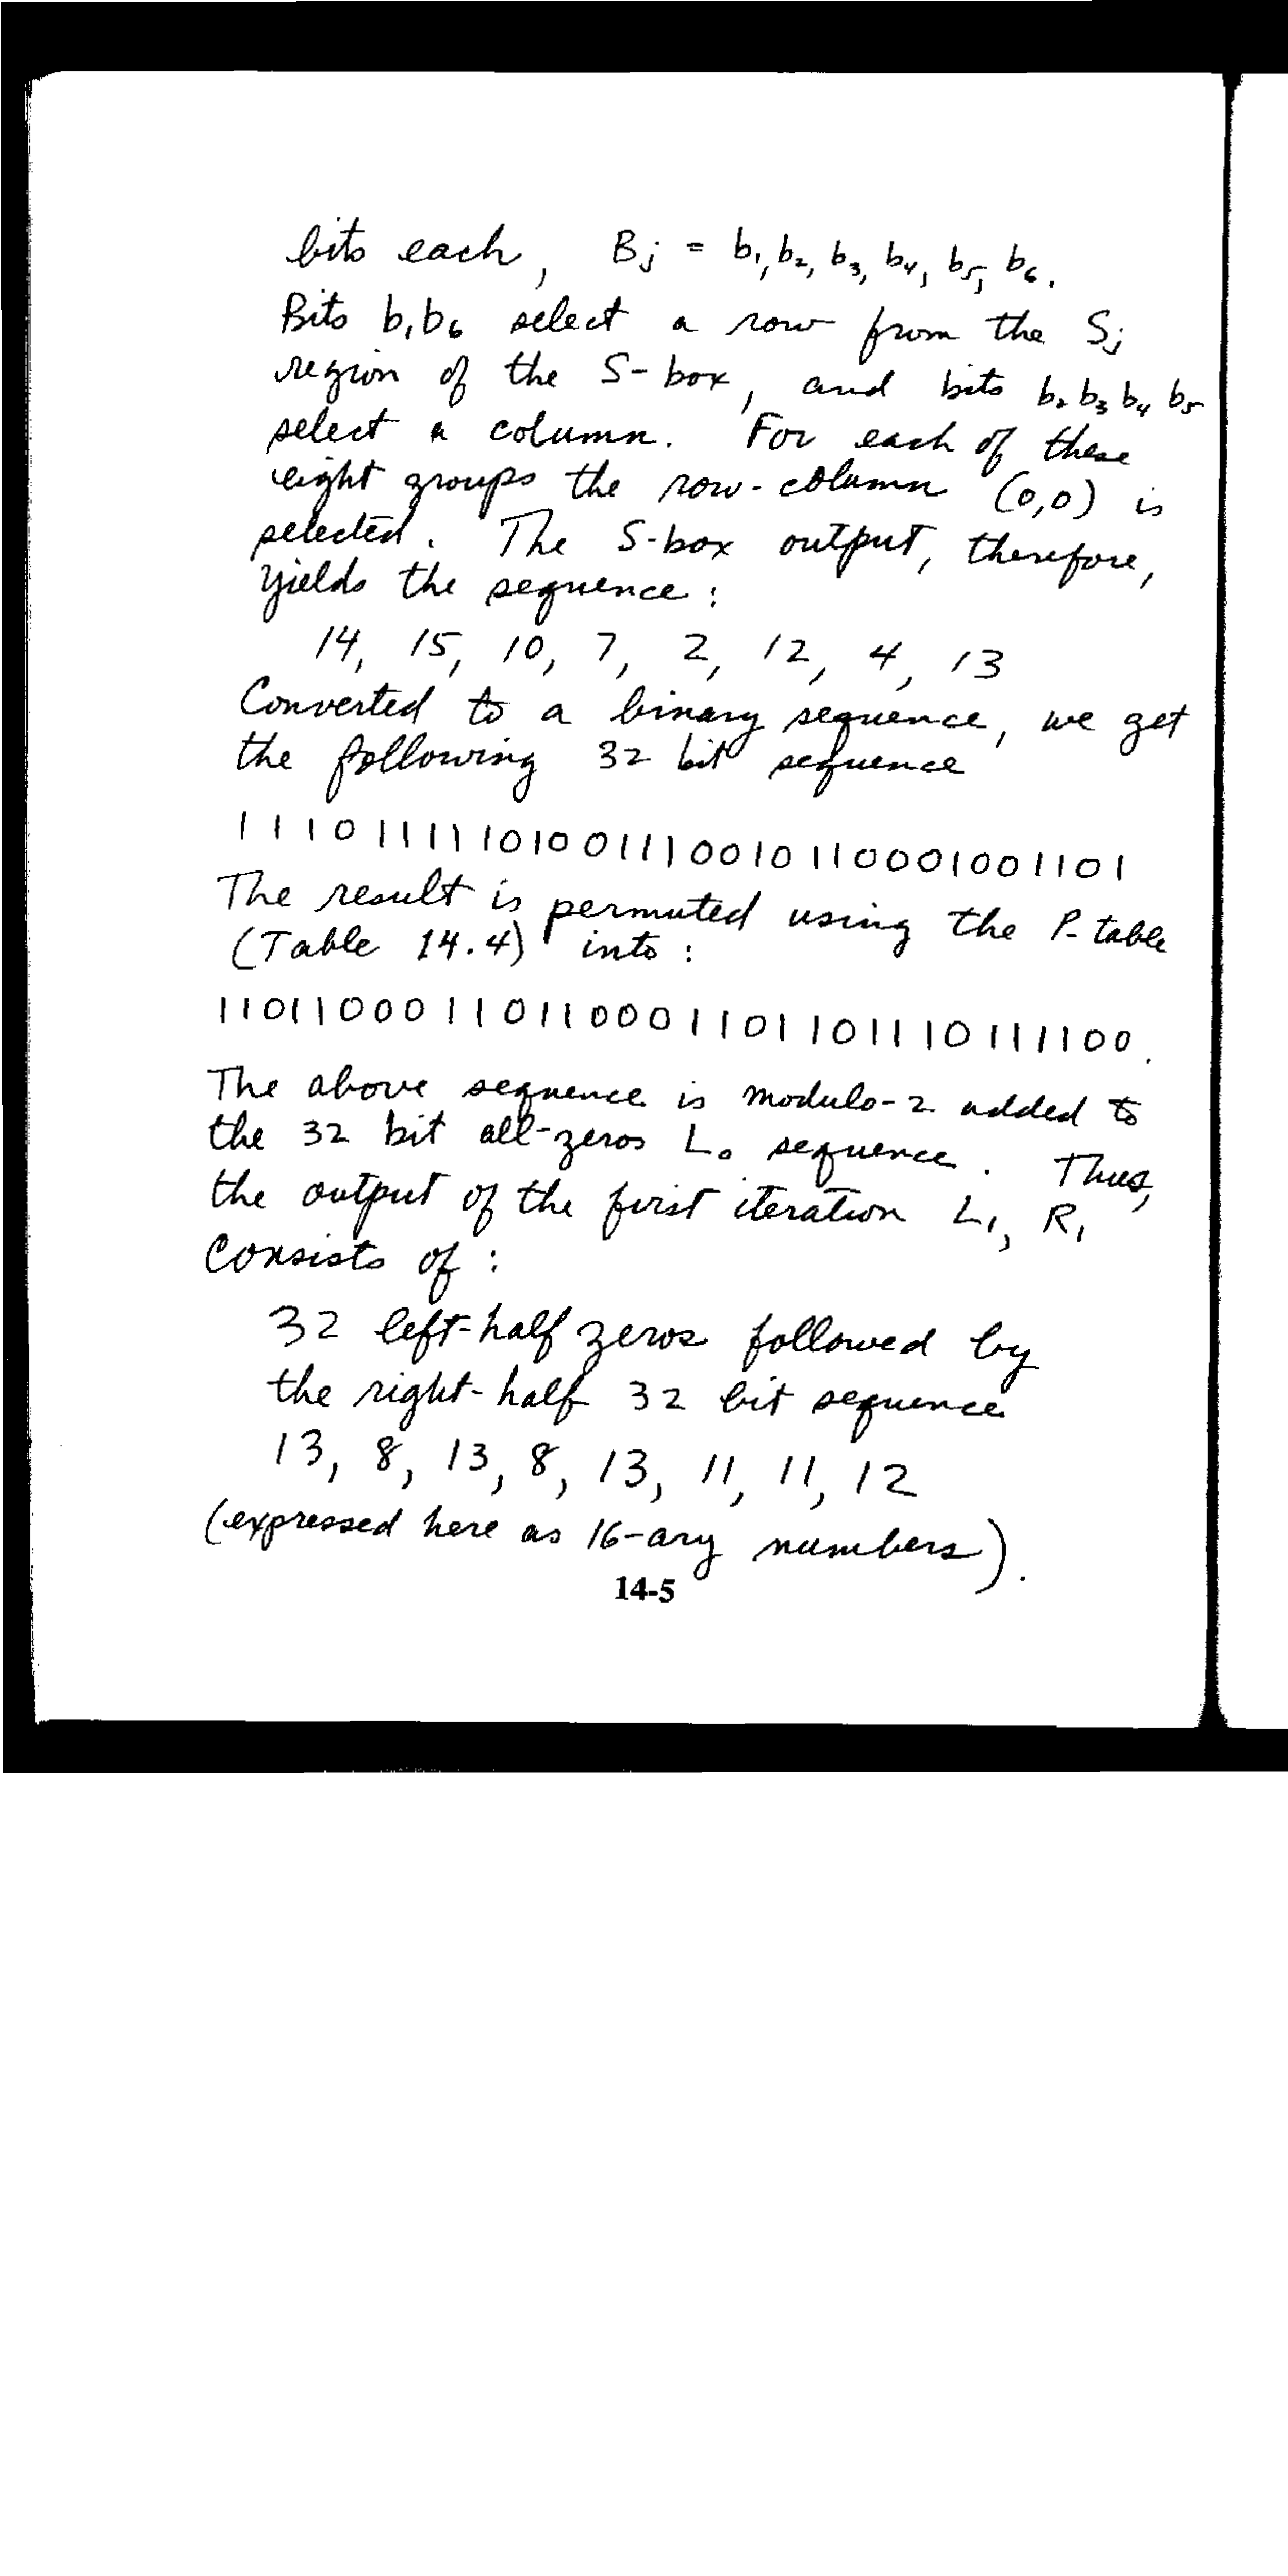 bits each, Bj = b₁, b₂, b₃, b₄, b₅, b₆.
Bits b₁b₆ select a row from the Sj
region of the S-box, and bits b₂ b₃ b₄ b₅
select a column. For each of these
eight groups the row-column (0,0) is
selected. The S-box output, therefore,
yields the sequence:
14, 15, 10, 7, 2, 12, 4, 13
Converted to a binary sequence, we get
the following 32 bit sequence
11101111101001110010110001001101
The result is permuted using the P-table
(Table 14.4) into:
11011000110110001101101110111100.
The above sequence is modulo-2 added to
the 32 bit all-zeros L₀ sequence. Thus,
the output of the first iteration L₁, R₁
consists of:
32 left-half zeros followed by
the right-half 32 bit sequence
13, 8, 13, 8, 13, 11, 11, 12
(expressed here as 16-ary numbers).
14-5